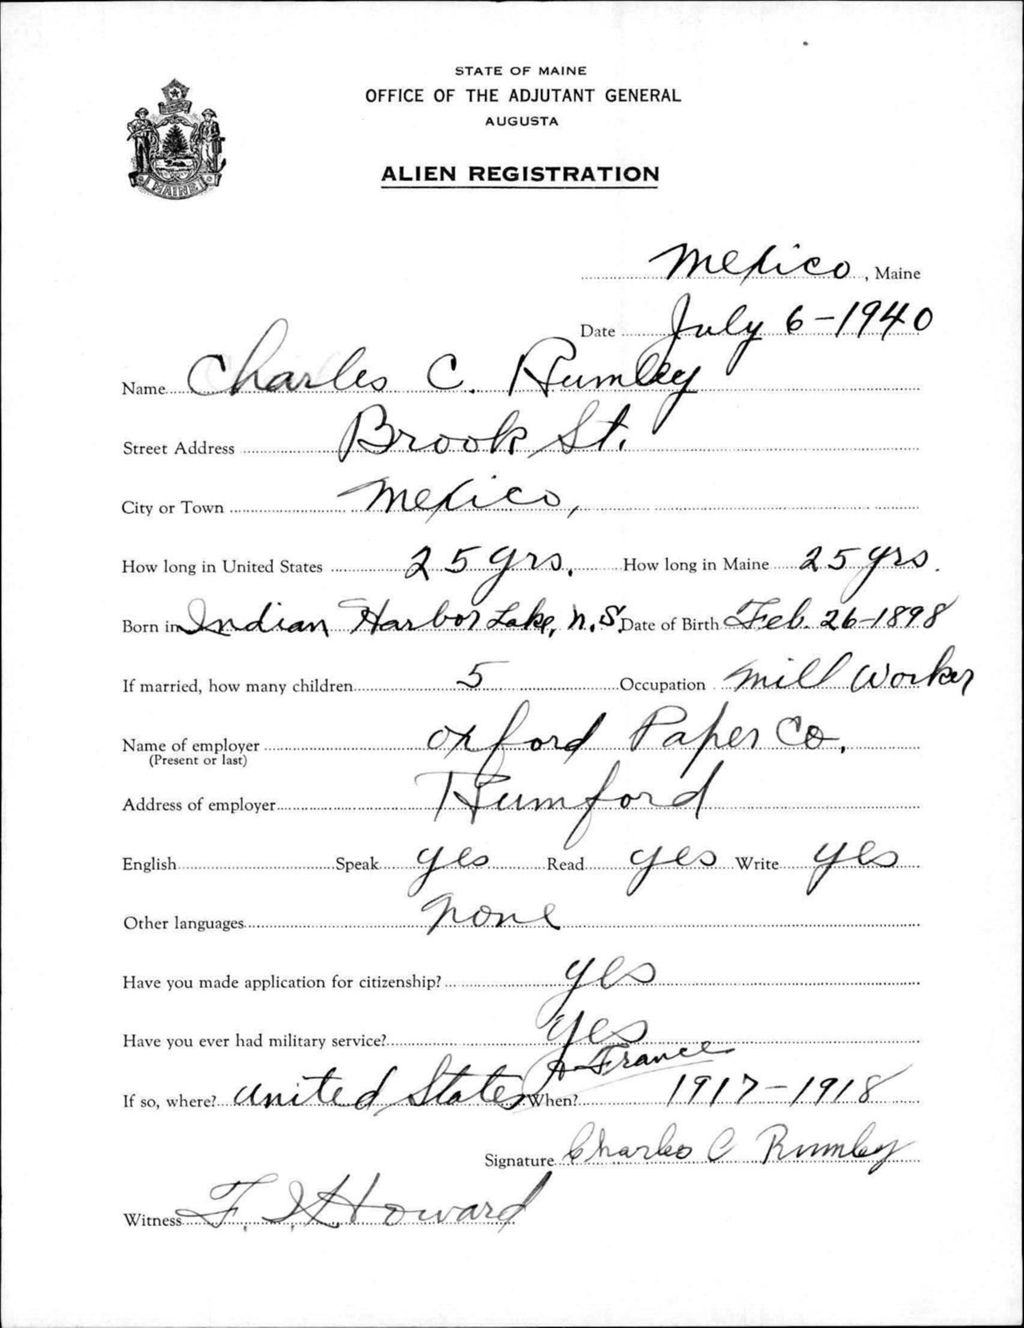 STATE OF MAINE
OFFICE OF THE ADJUTANT GENERAL
AUGUSTA
ALIEN REGISTRATION
MAINE
Mexico, Maine
Date July 6-1940
Name Charles C. Rumley
Street Address Brook St.
City or Town Mexico,
How long in United States 25 yrs. How long in Maine 25 yrs.
Born in Indian Harbor Lake, N.S. Date of Birth Feb. 26-1898
If married, how many children 5 Occupation Mill Worker
Name of employer Oxford Paper Co.
(Present or last)
Address of employer Rumford
English Speak yes Read yes Write yes
Other languages none
Have you made application for citizenship? yes
Have you ever had military service? yes
If so, where? United States & France When? 1917-1918
Signature Charles C Rumley
Witness F. J. Howard